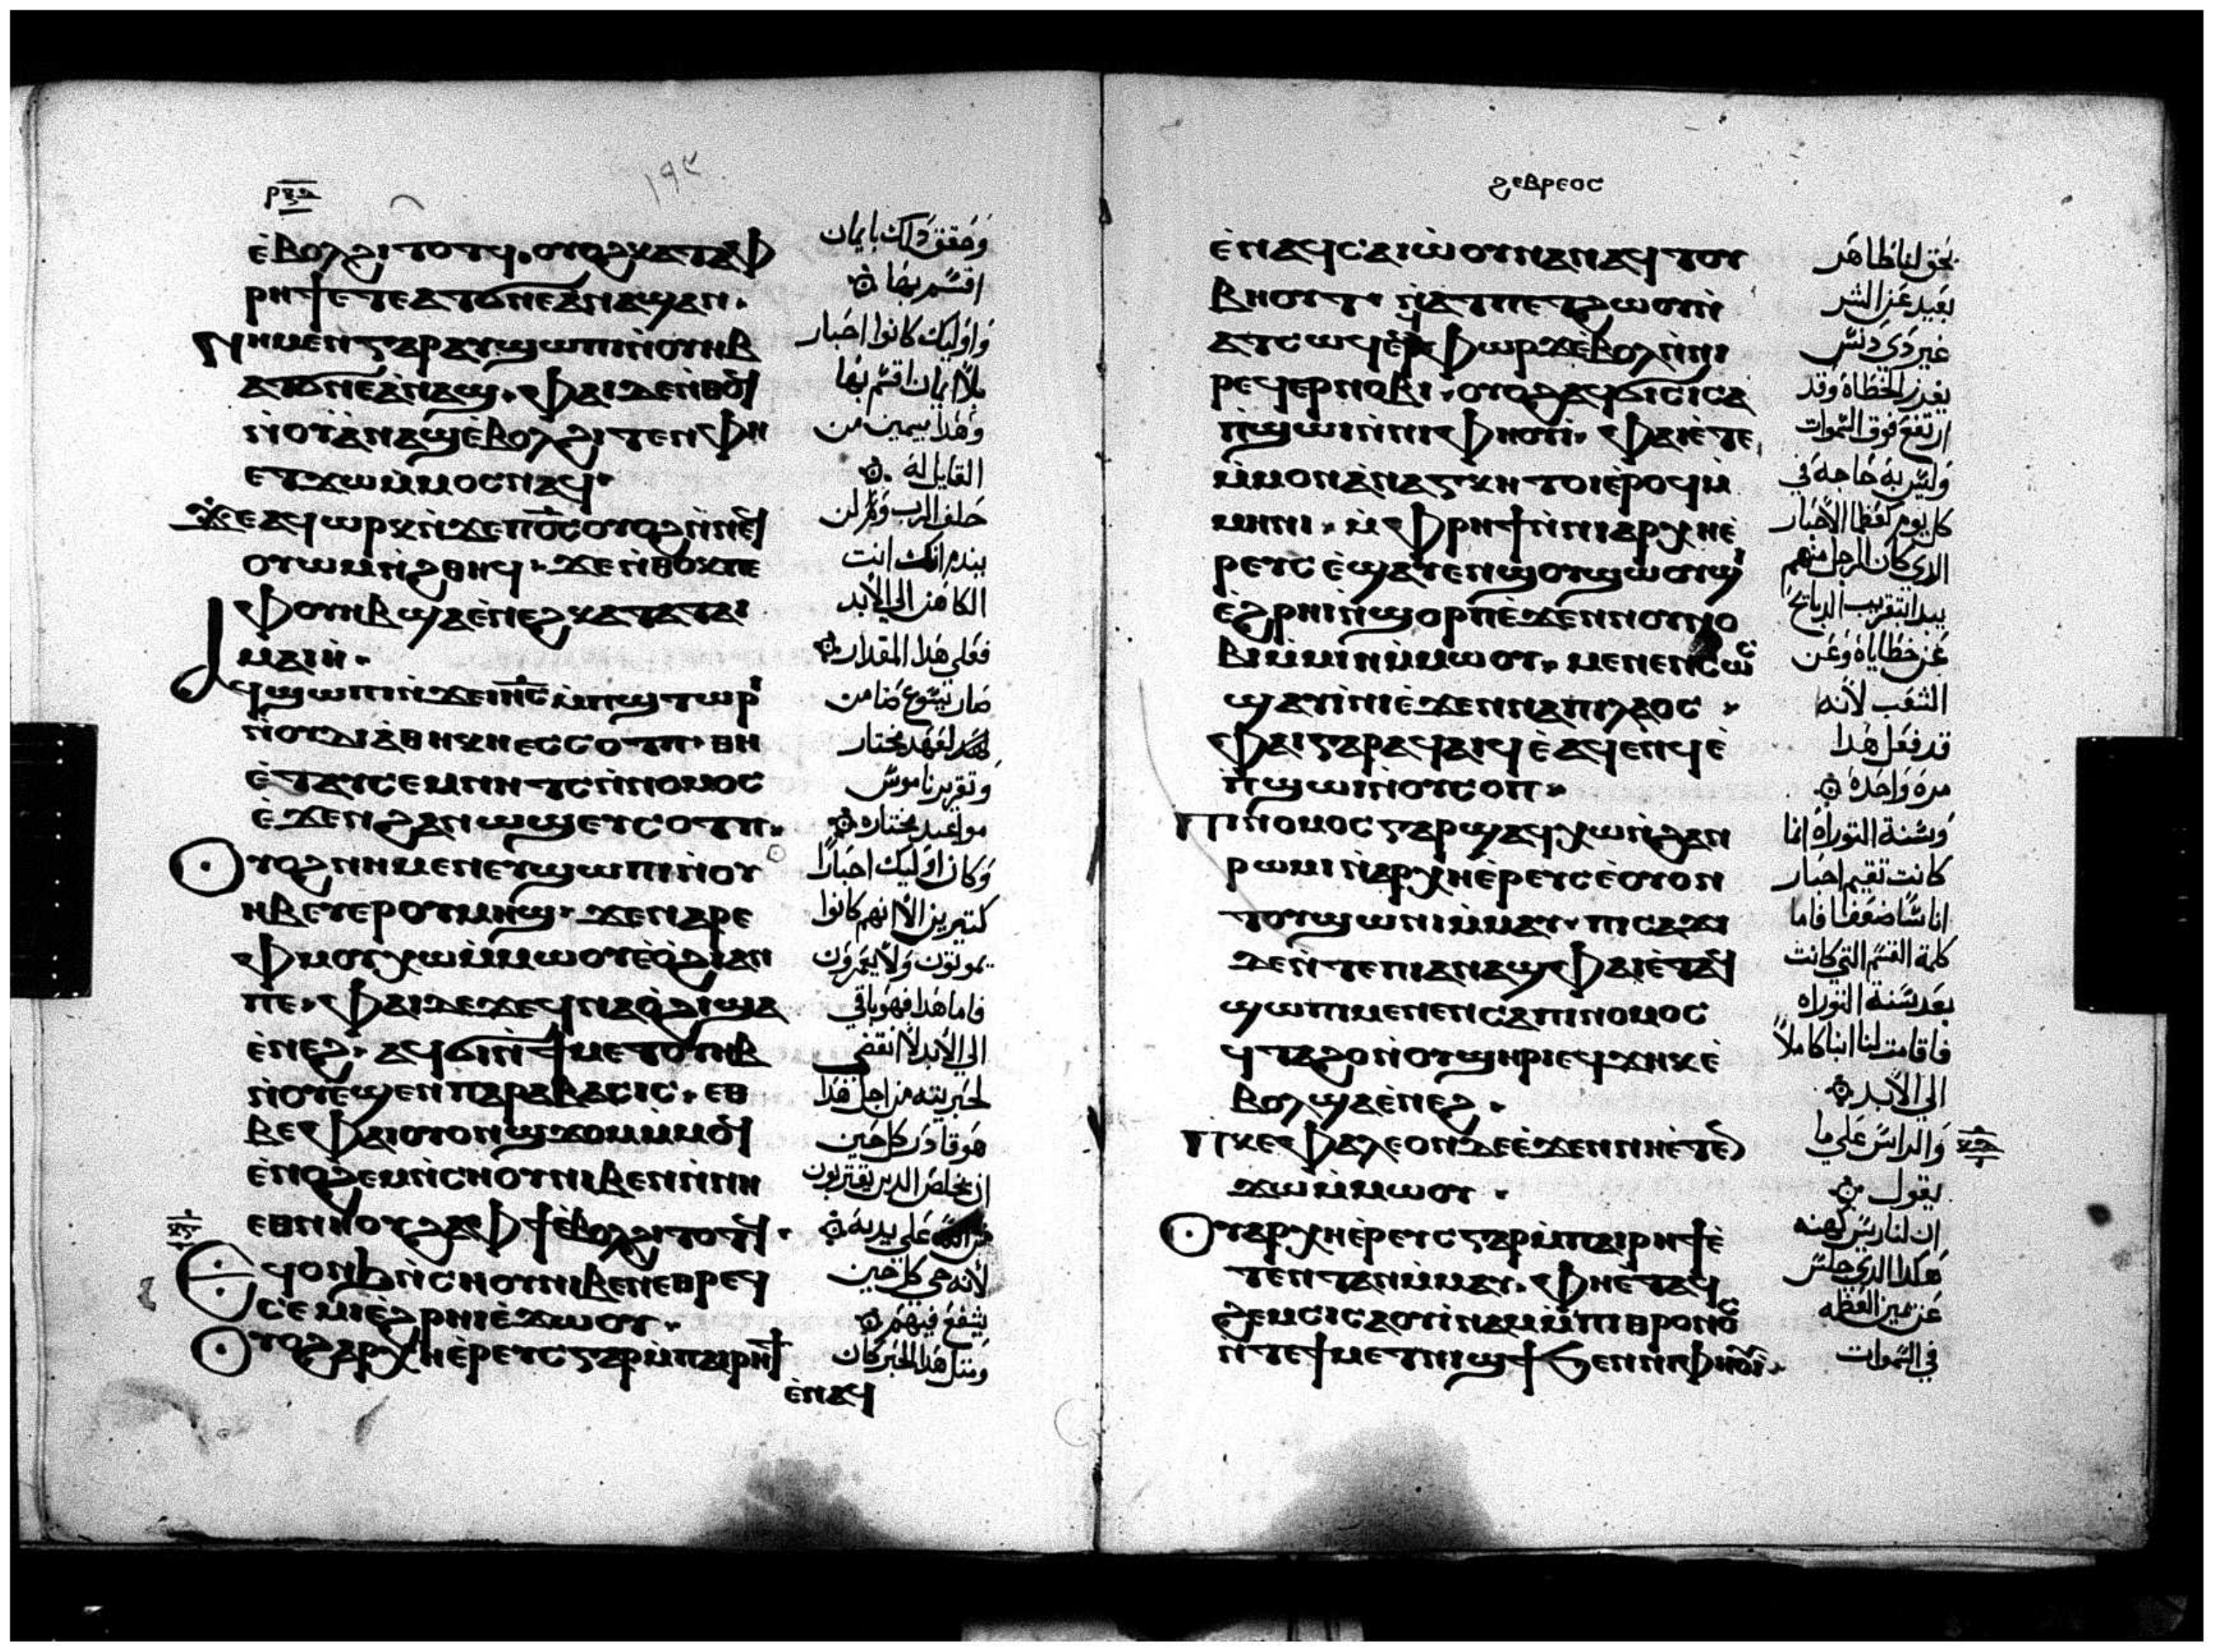 ⲉ̀ⲃⲟⲗϩⲓⲧⲟⲧϥ· ⲟⲩⲟϩⲕⲁⲧⲁⲫ
ⲣⲏϯⲉⲧⲉⲁⲧϭⲛⲉⲁⲛⲁϣⲁⲛ·
ⲛⲏⲙⲉⲛⲅⲁⲣⲁⲩϣⲱⲡⲓⲛ̀ⲟⲩⲏⲃ
ⲁⲧϭⲛⲉⲁ̀ⲛⲁϣ· ⲫⲁⲓⲇⲉⲛⲑⲟϥ
ⲛ̀ⲟⲩⲁ̀ⲛⲁϣⲉ̀ⲃⲟⲗϩⲓⲧⲉⲛⲫⲏ
ⲉⲧϫⲱⲙ̀ⲙⲟⲥⲛⲁϥ·
ϫⲉⲁϥⲱⲣⲕⲛ̀ϫⲉⲡⲟ̅ⲥ̅ⲟⲩⲟϩⲛ̀ⲛⲉϥ
ⲟⲩⲱⲙⲛ̀ϩⲑⲏϥ· ϫⲉⲛ̀ⲑⲟⲕⲡⲉ
ⲫⲟⲩⲏⲃϣⲁⲉ̀ⲛⲉϩⲕⲁⲧⲁⲧⲁⲓ
ⲙⲁⲓⲏ·
ⲁϥϣⲱⲡⲓⲛ̀ϫⲉⲓⲏ̅ⲥ̅ⲙ̀ⲡϣⲧⲱⲣⲓ
ⲛ̀ⲟⲩⲇⲓⲁ̀ⲑⲏⲕⲏⲉⲥⲥⲟⲧⲡ· ⲑⲏ
ⲉ̀ⲧⲁⲩⲥⲉⲙⲛⲏⲧⲥⲛ̀ⲛⲟⲙⲟⲥ
ⲉ̀ϫⲉⲛϩⲁⲛⲱϣⲉⲩⲥⲟⲧⲡ·
ⲟⲩⲟϩⲛⲏⲙⲉⲛⲉⲩϣⲱⲡⲓⲛ̀ⲟⲩ
ⲏⲃⲉⲩⲉⲣⲟⲩⲙⲏϣ· ϫⲉⲛⲁⲣⲉ
ⲫⲙⲟⲩⲭⲱⲙ̀ⲙⲱⲟⲩⲉ̀ⲟ̀ϩⲓⲁⲛ
ⲡⲉ· ⲫⲁⲓⲇⲉϫⲉϥⲛⲁⲟ̀ϩⲓϣⲁ
ⲉ̀ⲛⲉϩ· ⲁϥϭⲓⲛ̀ϯⲙⲉⲧⲟⲩⲏⲃ
ⲛ̀ⲟⲩⲉ̀ϣⲉⲛⲡⲁⲣⲁⲃⲁⲥⲓⲥ· ⲉⲑ
ⲃⲉⲫⲁⲓⲟⲩⲟⲛϣϫⲟⲙⲙ̀ⲙⲟϥ
ⲉ̀ⲛⲟϩⲉⲙⲛ̀ⲥⲏⲟⲩⲛⲓⲃⲉⲛⲛ̀ⲛⲏ
ⲉⲑⲛⲏⲟⲩϩⲁⲫϯⲉ̀ⲃⲟⲗϩⲓⲧⲟⲧϥ·
ⲉϥⲟⲛϧⲛ̀ⲥⲏⲟⲩⲛⲓⲃⲉⲛⲉⲑⲣⲉϥ
ⲥⲉⲙⲓⲉ̀ϩⲣⲏⲓⲉ̀ϫⲱⲟⲩ·
ⲟⲩⲟϩⲁⲣⲭⲏⲉ̀ⲣⲉⲩⲥⲅⲁⲣⲙ̀ⲡⲁⲓⲣⲏϯ
ⲉ̀ⲛⲁϥ
وحقق ذلك بايمان
اقسم بها
واوليك كانوا احبار
بلا ايمان اقسم بها
وهذا بيمين من
القايل له
حلف الرب ولن
يندم انك انت
الكاهن الي الابد
فعلي هذا المقدار
صار يسوع ضامن
لعهد مختار
وتقرير ناموس
مواعيد مختاره
وكان اوليك احبارا
كثيرين لانهم كانوا
يموتون ولا يعمرون
فاما هذا فهو باقي
الي الابد لا انقضي
لحبريته من اجل هذا
هو قادر كل حين
ان يخلص الدين يقتربون
علي يديه
لانه حي كل حين
يشفع فيهم
ومثل هذا الحبر كان
ϩⲉⲃⲣⲉⲟⲥ
ⲉ̀ⲛⲁϥⲥⲁⲓⲱ̀ⲟⲩⲛⲁⲛⲁϥⲧⲟⲩ
ⲃⲏⲟⲩⲧ· ⲛ̀ⲁⲧⲡⲉⲧϩⲱⲟⲩⲛ̀
ⲁⲧⲥⲱϥⲉ̀ⲁϥⲫⲱⲣϫⲉ̀ⲃⲟⲗⲛ̀ⲛⲓ
ⲣⲉϥⲉⲣⲛⲟⲃⲓ· ⲟⲩⲟϩⲁϥϭⲓⲥⲓⲥⲁ
ⲡ̀ϣⲱⲓⲛ̀ⲛⲓⲫⲏⲟⲩⲓ· ⲫⲁⲓⲉ̀ⲧⲉ
ⲙ̀ⲙⲟⲛⲁ̀ⲛⲁⲅⲕⲏⲧⲟⲓⲉ̀ⲣⲟϥⲙ̀
ⲙⲏⲛⲓ· ⲙ̀ⲫⲣⲏϯⲛ̀ⲛⲓⲁⲣⲭⲏⲉ̀
ⲣⲉⲩⲥⲉ̀ϣⲁⲩⲉⲛϣⲟⲩϣⲱⲟⲩϣⲓ
ⲉ̀ϩⲣⲏⲓⲛ̀ϣⲟⲣⲡⲉ̀ϫⲉⲛⲛⲟⲩⲛⲟ
ⲃⲓⲙ̀ⲙⲓⲛⲙ̀ⲙⲱⲟⲩ· ⲙⲉⲛⲉⲛⲥⲱⲥ
ϣⲁⲩⲓ̀ⲛⲓⲉ̀ϫⲉⲛⲛⲁⲡⲓⲗⲁⲟⲥ·
ⲫⲁⲓⲅⲁⲣⲁϥⲁⲓϥⲉ̀ⲁϥⲉⲛϥⲉ̀
ⲡ̀ϣⲱⲓⲛ̀ⲟⲩⲥⲟⲡ·
ⲡⲓⲛⲟⲙⲟⲥⲅⲁⲣϣⲁϥⲭⲱⲛ̀ϩⲁⲛ
ⲣⲱⲙⲓⲛ̀ⲁⲣⲭⲏⲉ̀ⲣⲉⲩⲥⲉ̀ⲟⲩⲟⲛ
ⲧⲟⲩϣⲱⲛⲓⲙ̀ⲙⲁⲩ· ⲡⲓⲥⲁϫⲓ
ⲇⲉⲛ̀ⲧⲉⲡⲓⲁⲛⲁϣⲫⲁⲓⲉ̀ⲧⲁϥ
ϣⲱⲡⲓⲙⲉⲛⲉⲛⲥⲁⲡⲓⲛⲟⲙⲟⲥ
ϥⲧⲁϩⲟⲛ̀ⲟⲩϣⲏⲣⲓⲉϥϫⲏⲕⲉ̀
ⲃⲟⲗϣⲁⲉ̀ⲛⲉϩ·
ⲡⲕⲉⲫⲁⲗⲉⲟⲛⲇⲉⲉ̀ϫⲉⲛⲛⲏⲉ̀ⲧⲉ
ϫⲱⲙ̀ⲙⲱⲟⲩ·
ⲟⲩⲁⲣⲭⲏⲉ̀ⲣⲉⲩⲥⲅⲁⲣⲙ̀ⲡⲁⲓⲣⲏϯⲉ̀
ⲧⲉⲛⲧⲁⲛⲙ̀ⲙⲁⲩ· ⲫⲏⲉ̀ⲧⲁϥ
ϩⲉⲙⲥⲓⲥⲁⲟⲩⲓ̀ⲛⲁⲙⲙ̀ⲡⲓⲑⲣⲟⲛⲟⲥ
ⲛ̀ⲧⲉϯⲙⲉⲧⲛⲓϣϯϧⲉⲛⲛⲓⲫⲏⲟⲩⲓ·
يحق لنا طاهر
بعيد عن الشر
غير ذي دنس
الخطاه وقد
ارتفع فوق السموات
وليس به حاجه في
كل يوم كعظما الاحبار
الدي كان الرجل منهم
يبدا بتقريب الدبايح
عن خطاياه وعن
الشعب لانه
قد فعل هدا
مره واحده
وسنة التوراه انما
كانت تقيم احبار
اناسا ضعفا فاما
كلمة القسم التي كانت
بعد سنة التوراه
فاقامت لنا ابنا كاملا
الي الابد
والراس علي ما
يقول
ان لنا ريس كهنه
هكدا الدي جلس
عن يمين العظمه
في السموات